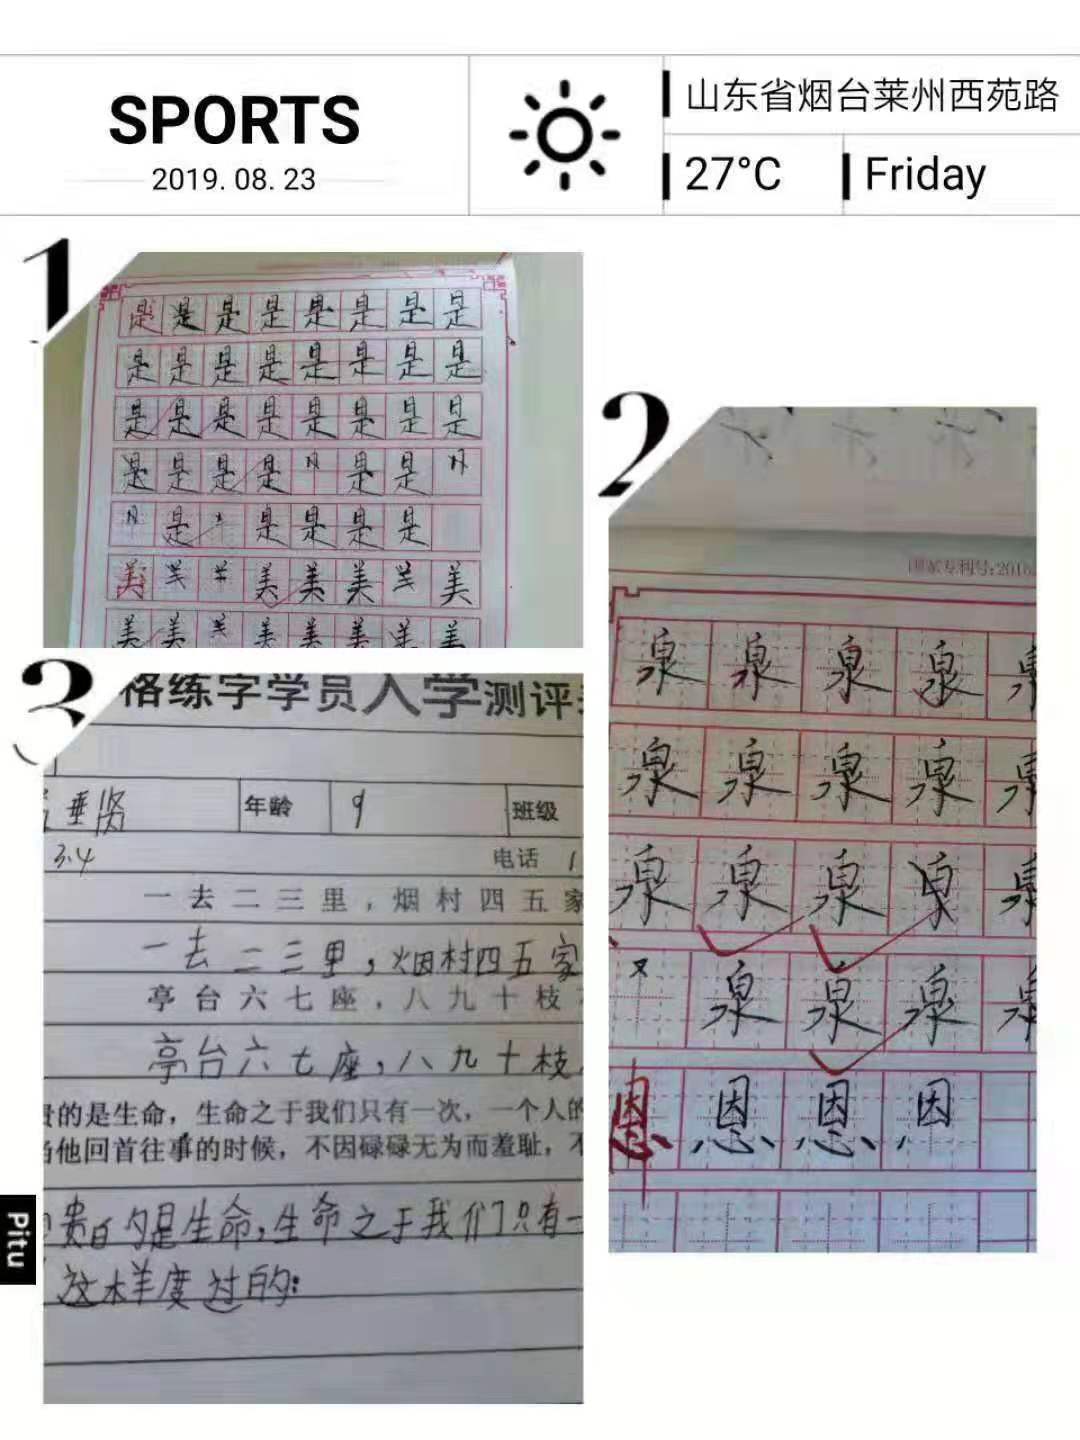 SPORTS
2019. 08. 23
山东省烟台莱州西苑路
27°C
Friday
1
是是是是是是是是
是是是是是是是是
是是是是是是是是
是是是是 是是
是 是是是是
美 美美美 美
美美 美美美美美
2
国家专利号:2016
泉泉泉泉
泉泉泉泉
泉泉泉泉
泉泉泉
恩恩恩因
3
格练字学员入学测评
垂贤 年龄 9 班级
3.4 电话 1
一去二三里，烟村四五家
一去二三里，烟村四五家
亭台六七座，八九十枝
亭台六七座，八九十枝
贵的是生命，生命之于我们只有一次，一个人的
当他回首往事的时候，不因碌碌无为而羞耻，不
贵的是生命，生命之于我们只有一
这样度过的:
Pitu